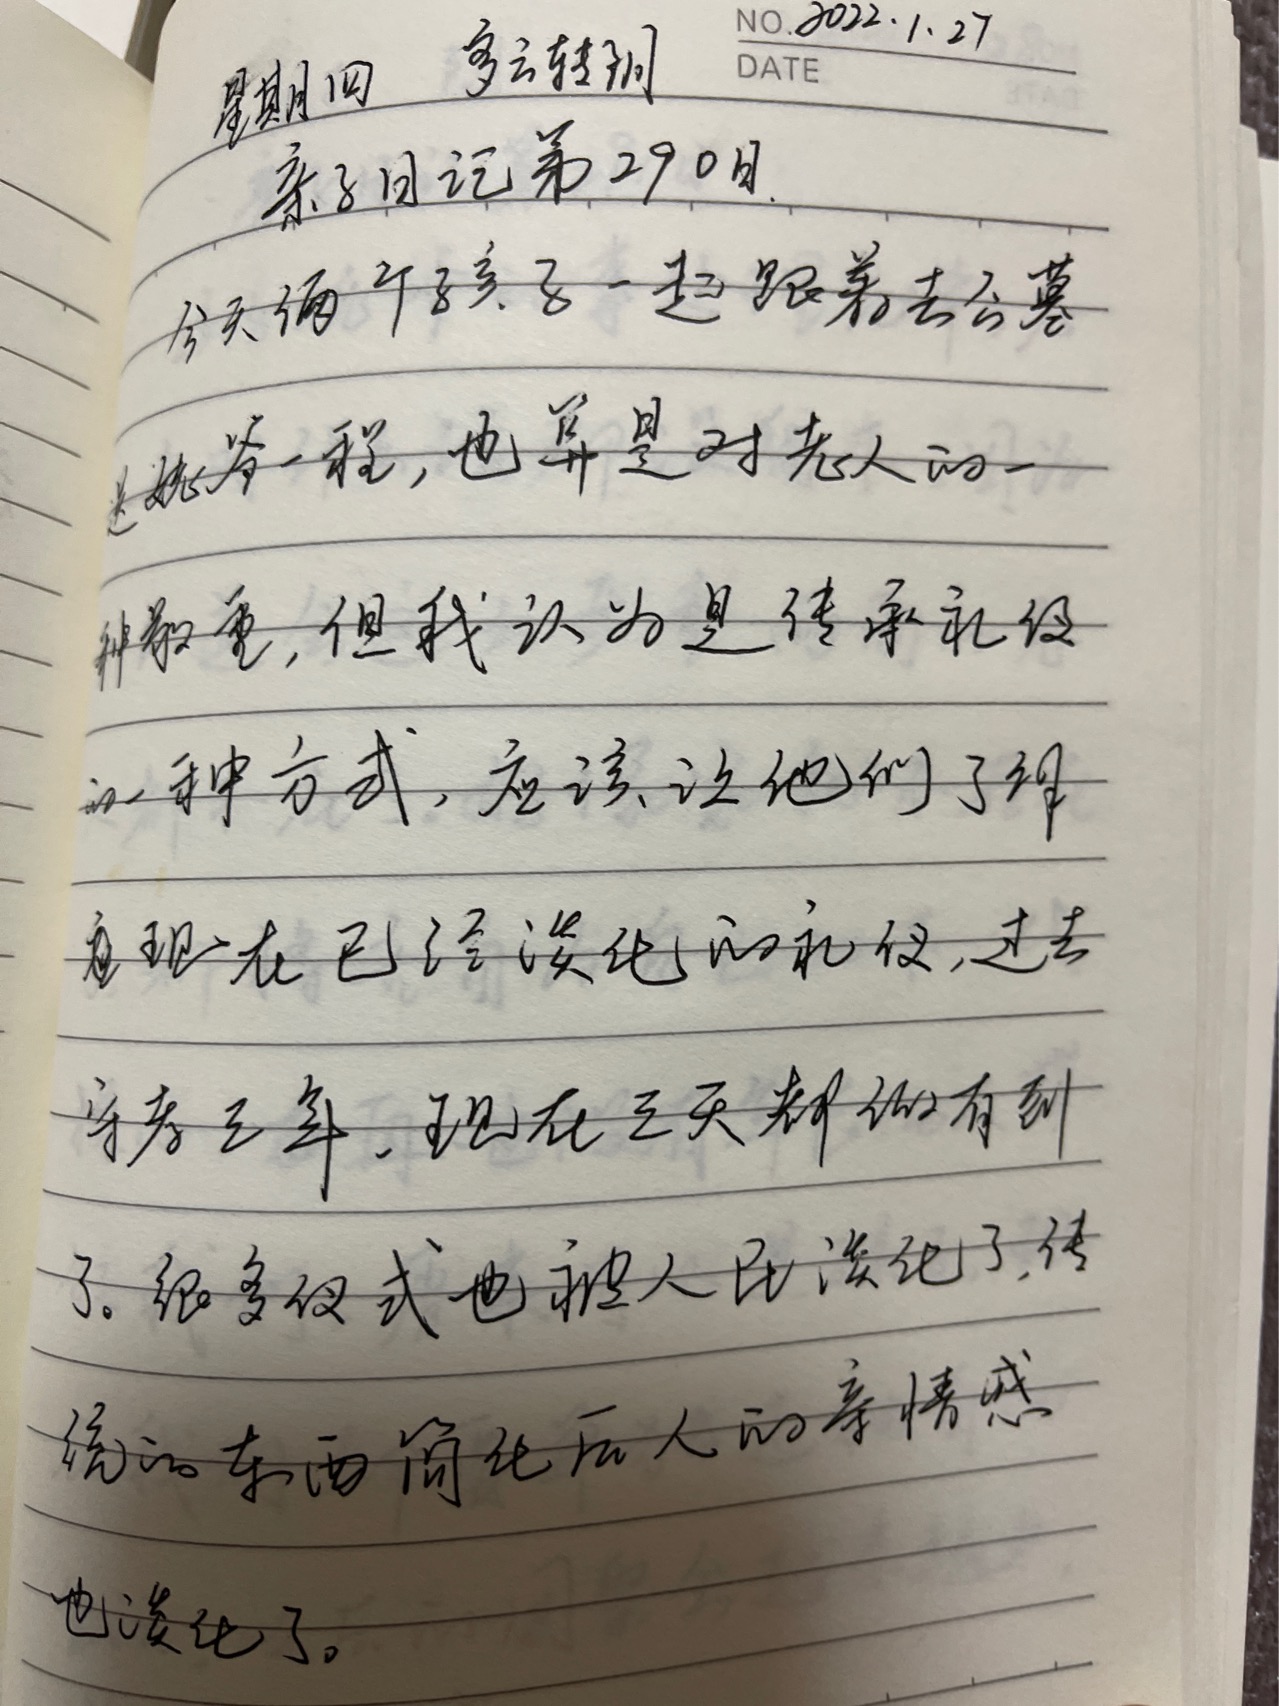 NO. 2022.1.27
DATE
星期四 多云转阴
亲子日记第290日.
今天俩个孩子一起跟着去公墓
送姥爷一程,也算是对老人的一
种敬重,但我认为是传承礼仪
的一种方式,应该让他们了解
现在已经淡化的礼仪,过去
守孝三年,现在三天都做有到
了。很多仪式也被人民淡化了,传
统的东西简化后人的亲情感
也淡化了。